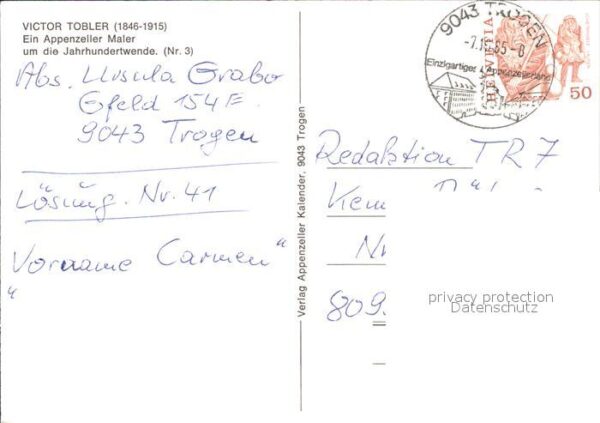 VICTOR TOBLER (1846-1915)
Ein Appenzeller Maler
um die Jahrhundertwende. (Nr. 3)
Abs. Ursula Grabo
Gfeld 154E
9043 Trogen
Lösung. Nr. 41
Vorname Carmen"
"
Verlag Appenzeller Kalender, 9043 Trogen
9043 TROGEN
Einzigartiges Appenzellerland
HELVETIA
50
Redaktion TR7
Kem
Nr
809.
privacy protection
Datenschutz